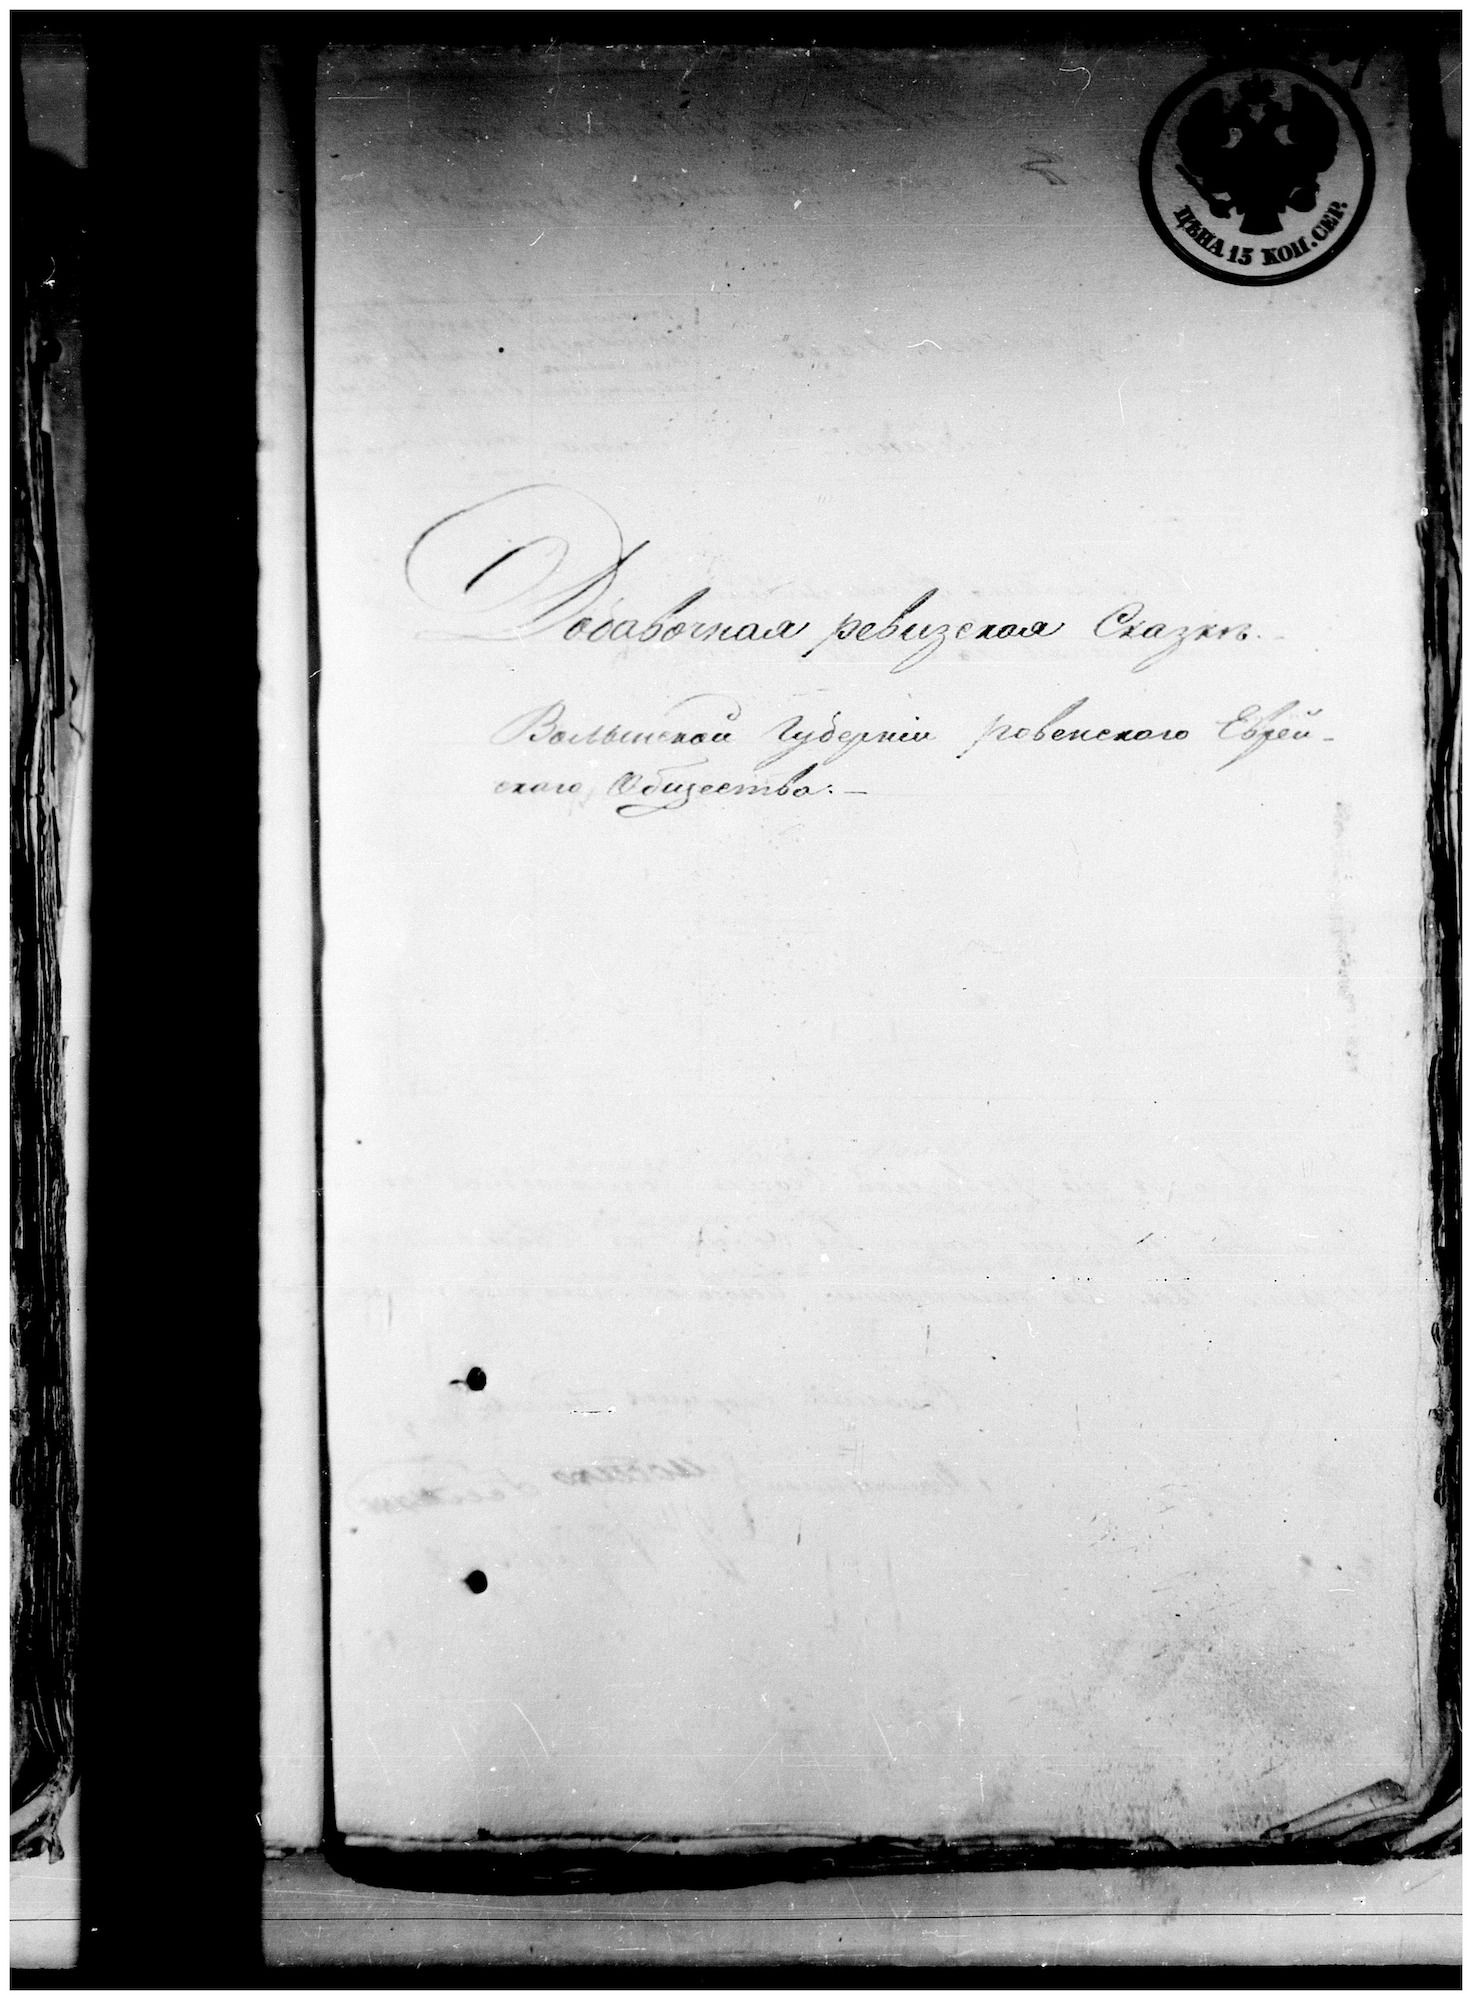 ЦѢНА 15 КОП. СЕР.
Добавочная ревизская Сказка.
Волынской Губерніи ровенского Еврей-
ского Общества:—